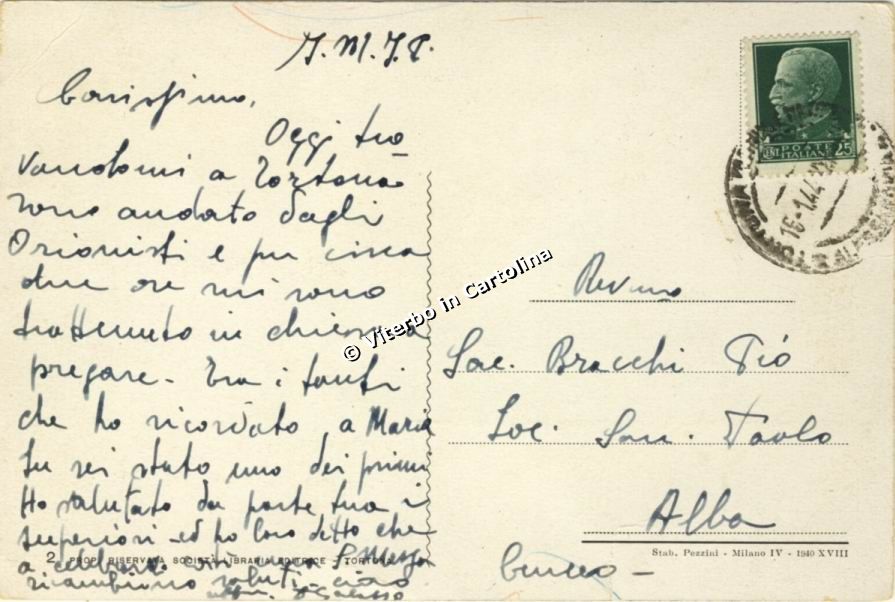 J. M. J. P.
Carissimo,
Oggi tro
vandomi a Tortona
sono andato dagli
Orionisti e per circa
due ore mi sono
trattenuto in chiesa a
pregare - Tra i tanti
che ho ricordato a Maria
tu sei stato uno dei primi
Ho salutato da parte tua i
superiori ed ho loro detto che
a celebrare S. Messa
ricambiano saluti - ciao
2 PROP. RISERVATA SOCIETÀ LIBRARIA EDITRICE - TORTONA
© Viterbo in Cartolina
POSTE
ITALIANE
CENT. 25
16·1·44
Rev.mo
Sac. Bracchi Pió
Soc. San. Paolo
Alba
Cuneo -
Stab. Pezzini - Milano IV - 1940 XVIII